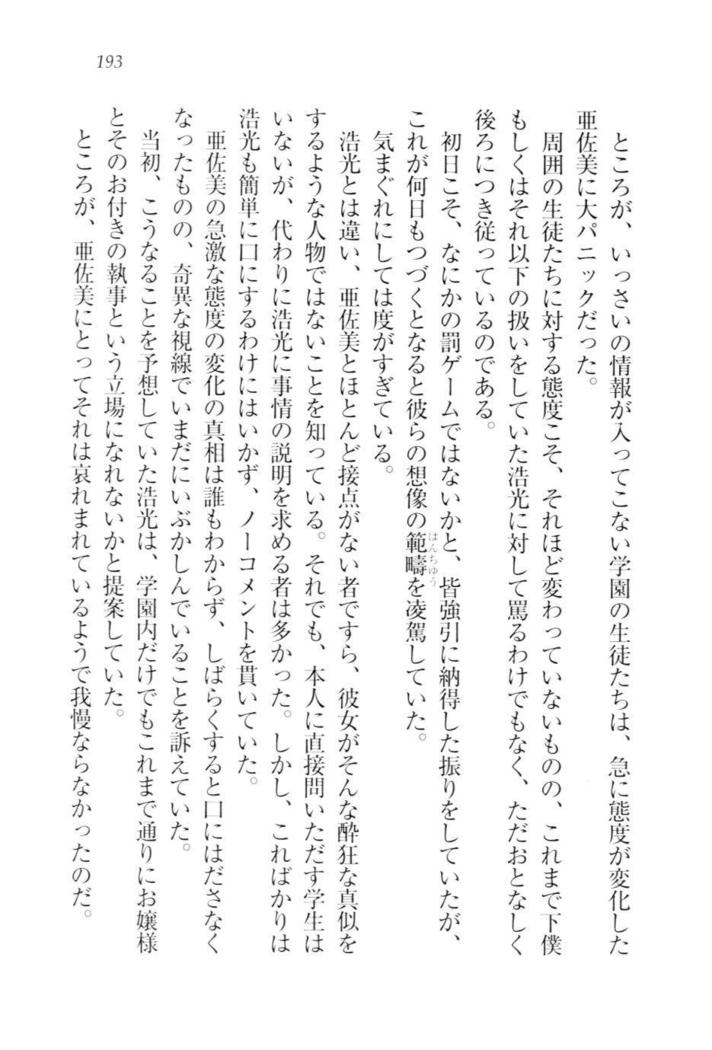 193
ところが、いっさいの情報が入ってこない学園の生徒たちは、急に態度が変化した
亜佐美に大パニックだった。
周囲の生徒たちに対する態度こそ、それほど変わっていないものの、これまで下僕
もしくはそれ以下の扱いをしていた浩光に対して罵るわけでもなく、ただおとなしく
後ろにつき従っているのである。
初日こそ、なにかの罰ゲームではないかと、皆強引に納得した振りをしていたが、
これが何日もつづくとなると彼らの想像の範疇はんちゅうを凌駕していた。
気まぐれにしては度がすぎている。
浩光とは違い、亜佐美とほとんど接点がない者ですら、彼女がそんな酔狂な真似を
するような人物ではないことを知っている。それでも、本人に直接問いただす学生は
いないが、代わりに浩光に事情の説明を求める者は多かった。しかし、こればかりは
浩光も簡単に口にするわけにはいかず、ノーコメントを貫いていた。
亜佐美の急激な態度の変化の真相は誰もわからず、しばらくすると口にはださなく
なったものの、奇異な視線でいまだにいぶかしんでいることを訴えていた。
当初、こうなることを予想していた浩光は、学園内だけでもこれまで通りにお嬢様
とそのお付きの執事という立場になれないかと提案していた。
ところが、亜佐美にとってそれは哀れまれているようで我慢ならなかったのだ。